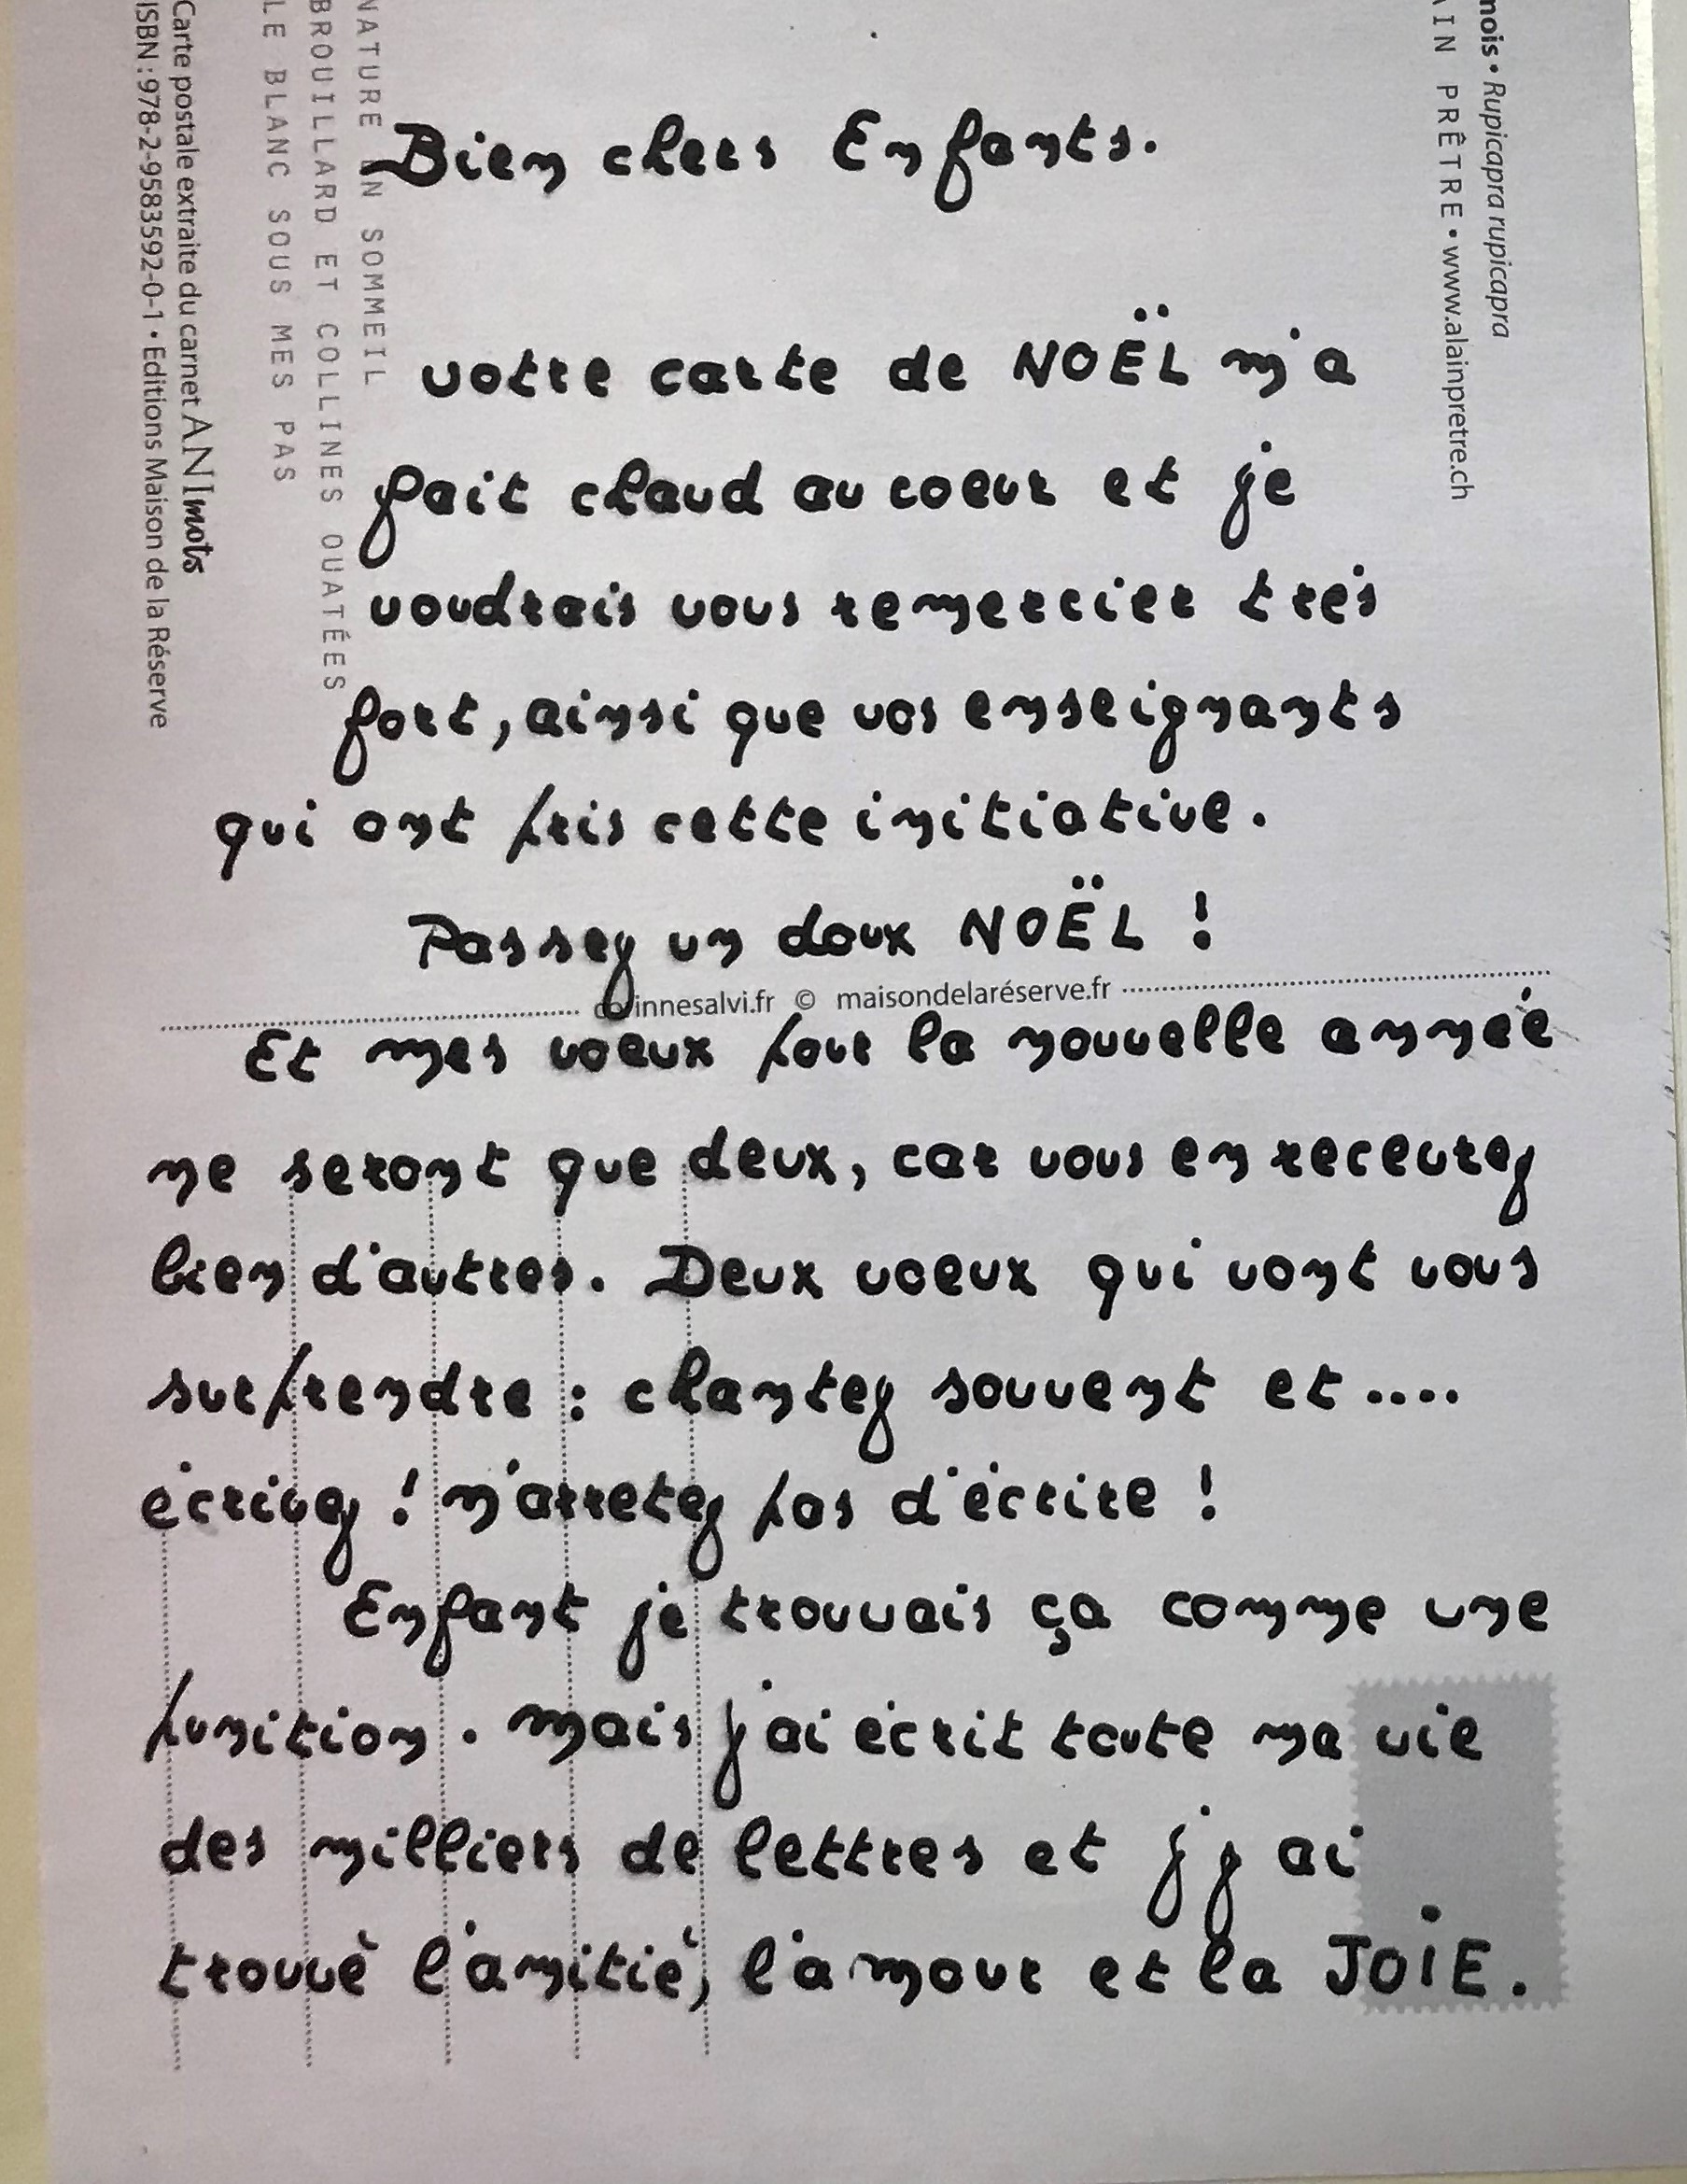 Bien chers Enfants.
votre carte de NOËL m'a
fait chaud au coeur et je
voudrais vous remercier très
fort, ainsi que vos enseignants
qui ont pris cette initiative.
Passez un doux NOËL !
corinnesalvi.fr © maisondelaréserve.fr
Et mes voeux pour la nouvelle année
ne seront que deux, car vous en recevrez
bien d'autres. Deux voeux qui vont vous
surprendre : chantez souvent et ....
écrivez ! n'arretez pas d'écrire !
Enfant je trouvais ça comme une
punition. mais j'ai écrit toute ma vie
des milliers de lettres et j'y ai
trouvé l'amitié, l'amour et la JOIE.
NATURE EN SOMMEIL
BROUILLARD ET COLLINES OUATÉES
LE BLANC SOUS MES PAS
Carte postale extraite du carnet ANImots
ISBN : 978-2-9583592-0-1 • Editions Maison de la Réserve
mois • Rupicapra rupicapra
AIN PRÊTRE • www.alainpretre.ch